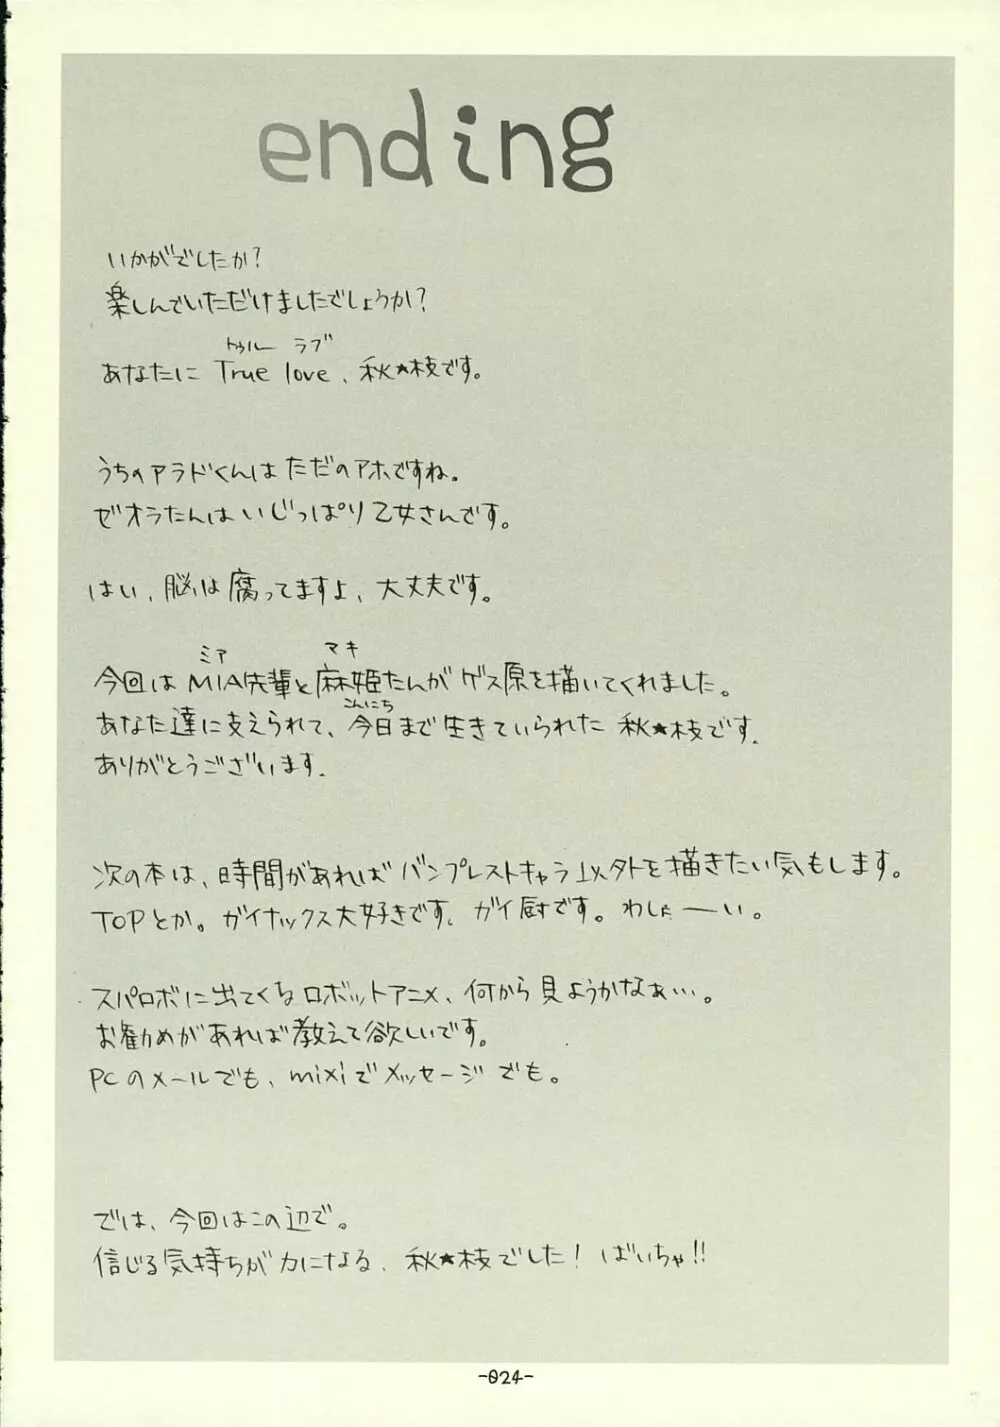 ending
いかがでしたか?
楽しんでいただけましたでしょうか?
トゥルー ラブ
あなたに True love、秋★枝です。
うちのアラドくんはただのアホですね。
ゼオラたんはいじっぱり乙女さんです。
はい、脳は腐ってますよ、大丈夫です。
ミア マキ
今回はMIA先輩と麻姫たんがゲス原を描いてくれました。
こんにち
あなた達に支えられて、今日まで生きていられた 秋★枝です。
ありがとうございます。
次の本は、時間があればバンプレストキャラ以外を描きたい気もします。
TOPとか。ガイナックス大好きです、ガイ厨です。わしょーい。
スパロボに出てくるロボットアニメ、何から見ようかなぁ…。
お勧めがあれば教えて欲しいです。
PCのメールでも、mixiでメッセージでも。
では、今回はこの辺で。
信じる気持ちが力になる、秋★枝でした! ばいちゃ!!
-024-